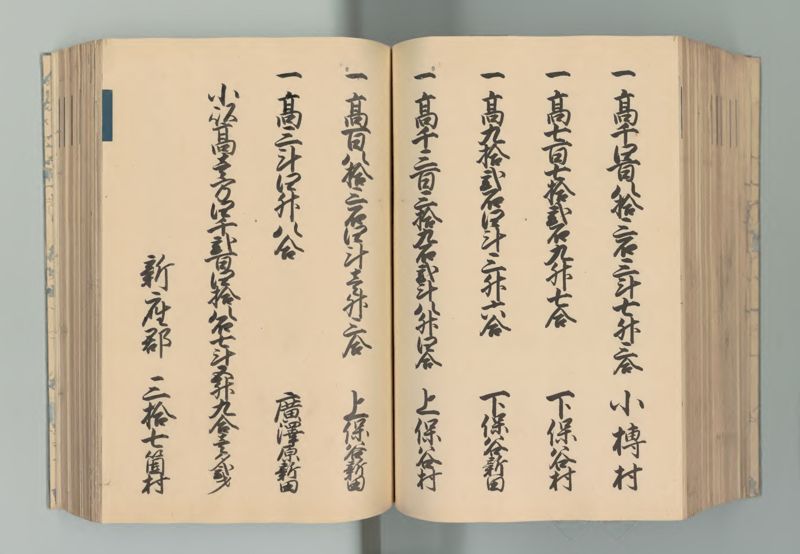 一高千四百八拾三石三斗七升三合 小榑村
一高七百七拾弐石九升七合 下保谷村
一高九拾弐石四斗三升六合 下保谷新田
一高千三百三拾九石弐斗八升四合 上保谷村
一高百八拾三石四斗壱升三合 上保谷新田
一高三斗四升八合 廣澤原新田
小以高壱万四千弐百四拾八石七斗五升九合壱勺弐才
新座郡 三拾七箇村